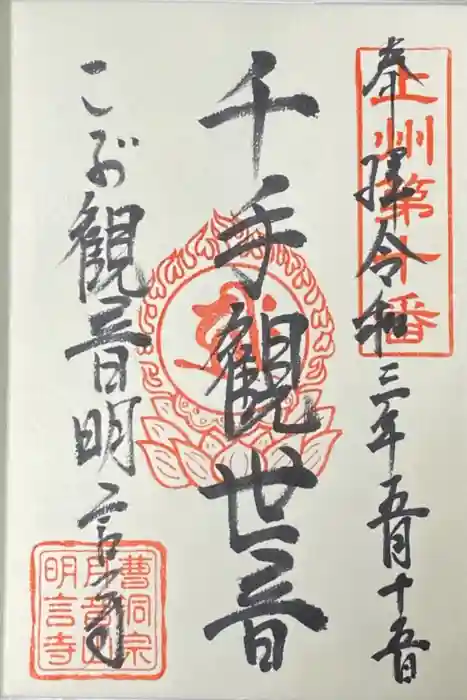 上州第十番
奉拝令和三年五月十五日
千手観世音
こぶ観音明言寺
曹洞宗
明言寺